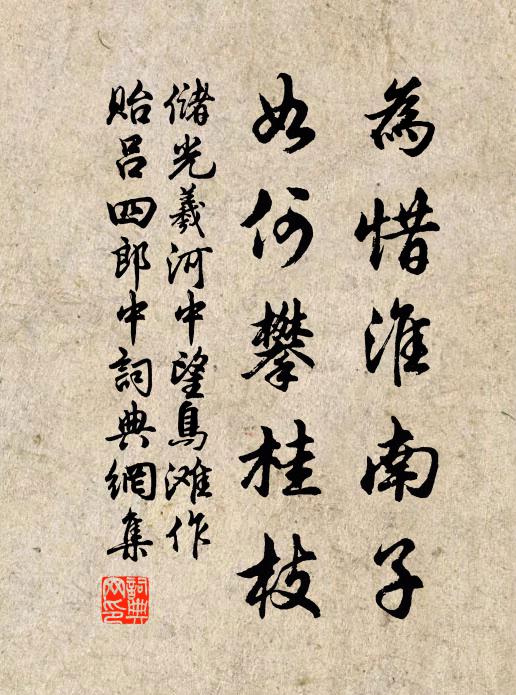 為惜淮南子
如何攀桂枝
儲光羲河中望鳥灘作
貽呂四郎中詞典網集
詞典網印